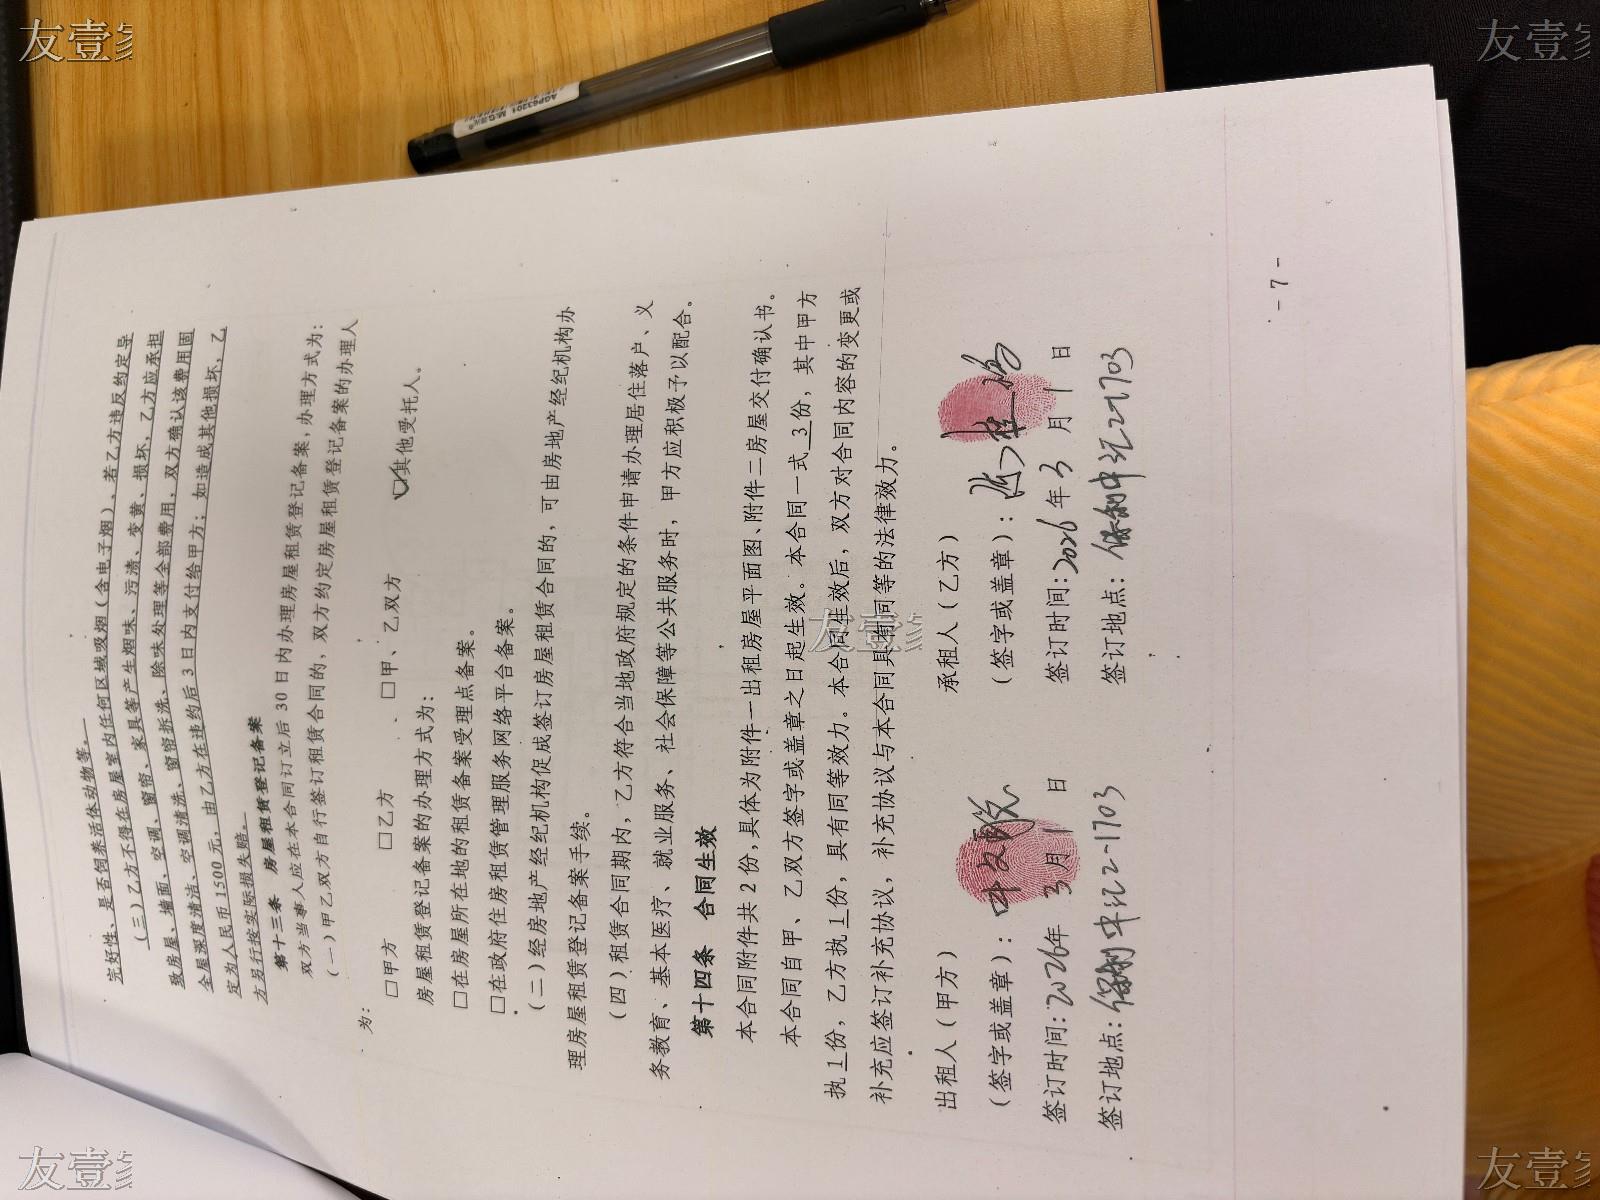 完好性、是否饲养活体动物等。
（三）乙方不得在房屋室内任何区域吸烟（含电子烟），若乙方违反约定导
致房屋、墙面、空调、窗帘、家具等产生烟味、污渍、变黄、损坏，乙方应承担
全屋深度清洁、空调清洗、窗帘拆洗、除味处理等全部费用，双方确认该费用固
定为人民币1500元，由乙方在违约后3日内支付给甲方；如造成其他损坏，乙
方另行按实际损失赔。
第十三条 房屋租赁登记备案
双方当事人应在本合同订立后30日内办理房屋租赁登记备案，办理方式为：
（一）甲乙双方自行签订租赁合同的，双方约定房屋租赁登记备案的办理人
为：
□甲方 □乙方 □甲、乙双方 ☑其他受托人。
房屋租赁登记备案的办理方式为：
□在房屋所在地的租赁备案受理点备案。
□在政府住房租赁管理服务网络平台备案。
（二）经房地产经纪机构促成签订房屋租赁合同的，可由房地产经纪机构办
理房屋租赁登记备案手续。
（四）租赁合同期内，乙方符合当地政府规定的条件申请办理居住落户、义
务教育、基本医疗、就业服务、社会保障等公共服务时，甲方应积极予以配合。
第十四条 合同生效
本合同附件共2份，具体为附件一出租房屋平面图、附件二房屋交付确认书。
本合同自甲、乙双方签字或盖章之日起生效。本合同一式3份，其中甲方
执1份，乙方执1份，具有同等效力。本合同生效后，双方对合同内容的变更或
补充应签订补充协议，补充协议与本合同具有同等的法律效力。
出租人（甲方） 承租人（乙方）
（签字或盖章）： （签字或盖章）：
签订时间：2026年3月1日 签订时间：2026年3月1日
签订地点：保利中汇2-1703 签订地点：保利中汇2-1703
- 7 -
友壹家
友壹家
友壹家
友壹家
友壹家
AGP63201 M&G